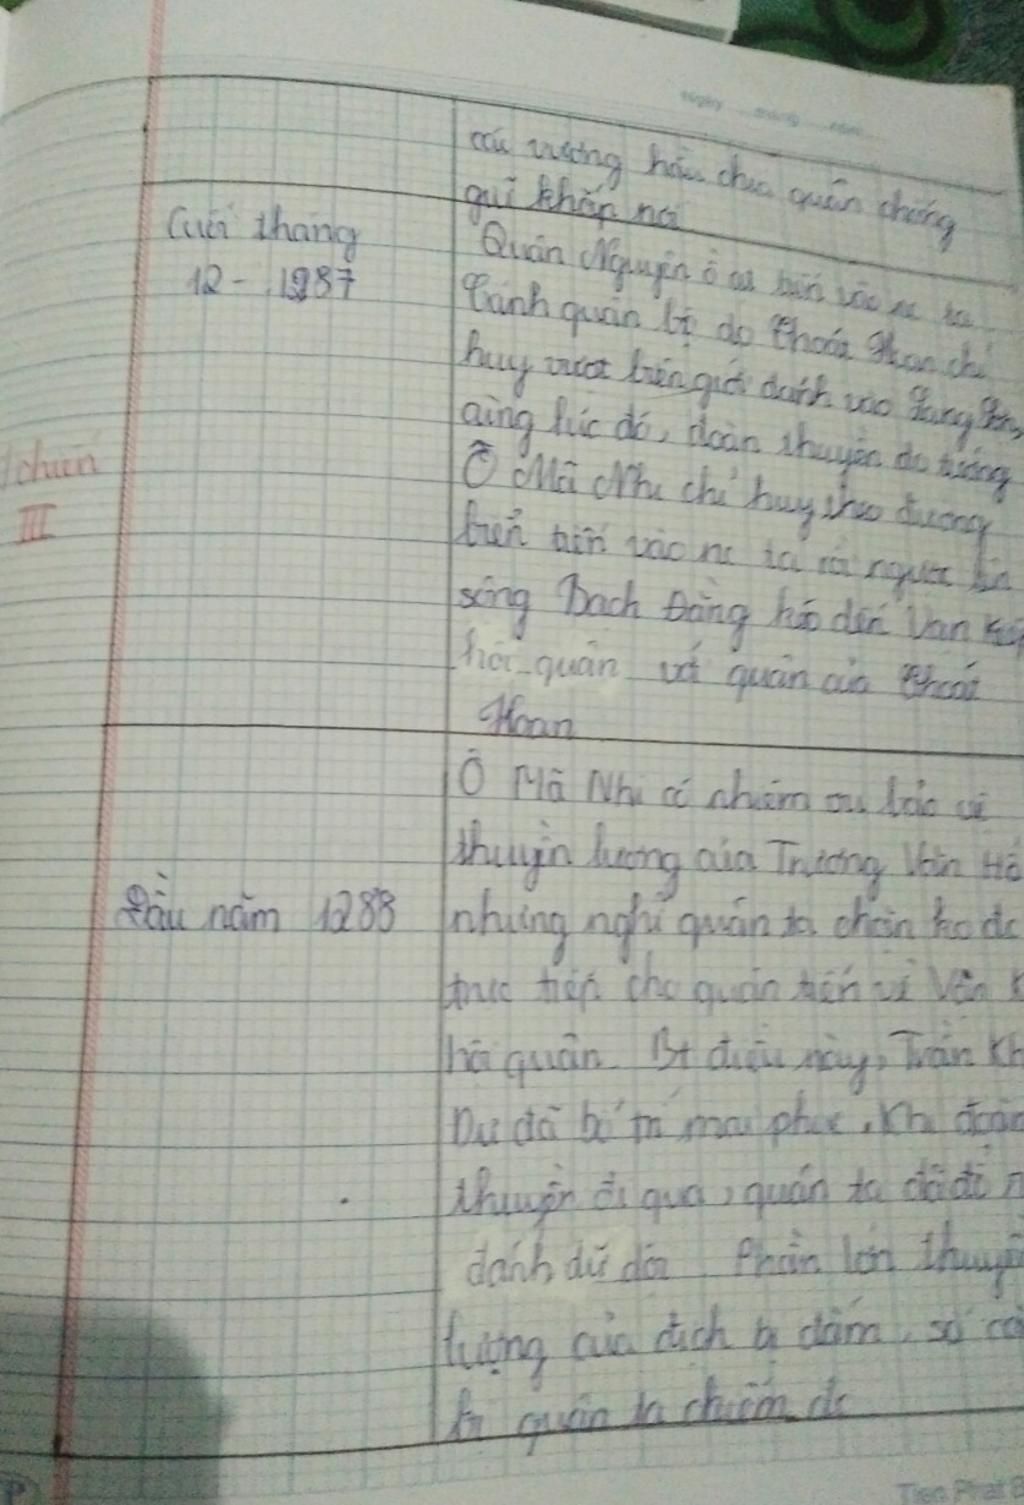 Ngày tháng năm
các vương hầu chia quân chống
giữ khắp nơi
Cuối tháng
12 - 1287
Quân Nguyên ồ ạt tiến vào nc ta
Cánh quân bộ do Thoát Hoan chỉ
huy vượt biên giới đánh vào Lạng Sơn,
cùng lúc đó, đoàn thuyền do tướng
Ô Mã Nhi chỉ huy theo đường
biển tiến vào nc ta rồi ngược lên
sông Bạch Đằng kéo đến Vạn Kiếp
hội quân với quân của Thoát
Hoan
chiến
III
Đầu năm 1288
Ô Mã Nhi có nhiệm vụ bảo vệ
thuyền lương của Trương Văn Hổ
nhưng nghĩ quân ta chặn ko dc
trực tiếp cho quân tiến về Vạn
hội quân. Bt điều này, Trần Kh
Dư đã bố trí mai phục. Khi đoàn
thuyền đi qua, quân ta đã đổ
đánh dữ dội. Phần lớn thuyền
lương của địch bị đắm, số cò
bị quân ta chiếm dc
Tien Phat